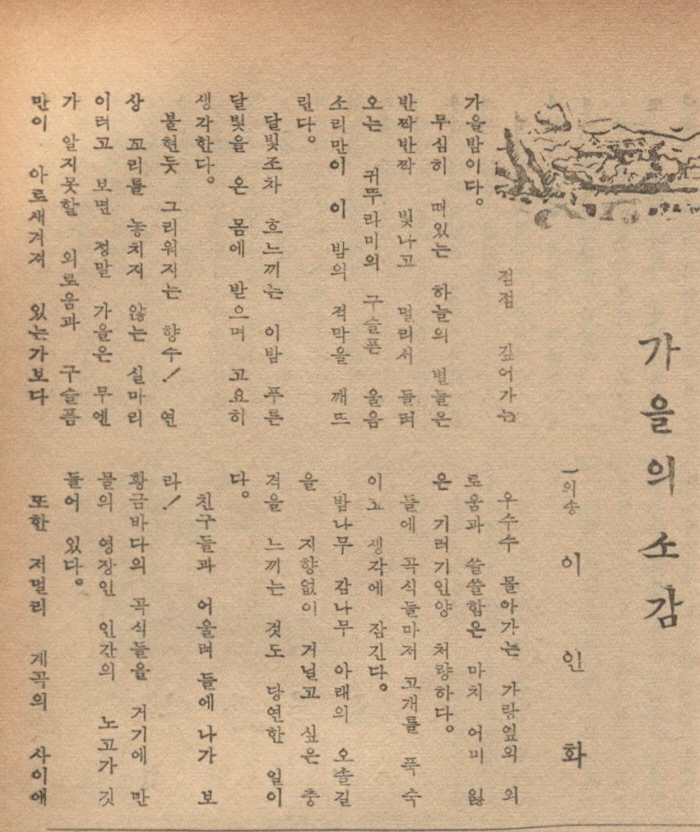 가을의 소감
一의송 이인화
점점 깊어가는
가을밤이다。
무심히 떠있는 하늘의 별들은
반짝반짝 빛나고 멀리서 들려
오는 귀뚜라미의 구슬픈 울음
소리만이 이 밤의 적막을 깨뜨
린다。
달빛조차 흐느끼는 이밤 푸른
달빛을 온 몸에 받으며 고요히
생각한다。
불현듯 그리워지는 향수! 연
상 꼬리를 놓치지 않는 실마리
이러고 보면 정말 가을은 무엔
가 알지못할 외로움과 구슬픔
만이 아로새겨져 있는가보다
우수수 몰아가는 가랑잎의 외
로움과 쓸쓸함은 마치 어미 잃
은 기러기인양 처량하다。
들에 곡식들마저 고개를 푹 숙
이고 생각에 잠긴다。
밤나무 감나무 아래의 오솔길
을 지향없이 거닐고 싶은 충
격을 느끼는 것도 당연한 일이
다。
친구들과 어울려 들에 나가 보
라!
황금바다의 곡식들을 거기에 만
물의 영장인 인간의 노고가 깃
들어 있다。
또한 저멀리 계곡의 사이에